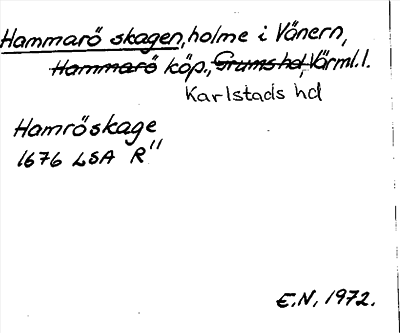 Hammarö skagen, holme i Vänern,
Hammarö köp., Grums hd, Värml.l.
Karlstads hd
Hamröskage
1676 LSA R"
E.N. 1972.